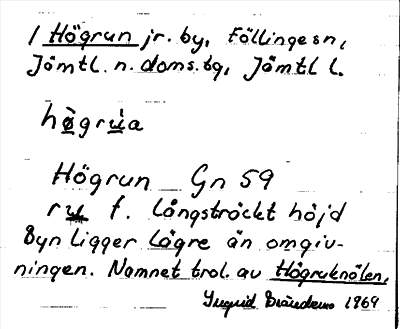 / Högrun jr. by, Föllinge sn,
Jämtl. n. doms. bg, Jämtl l.
hø̀gru̇̀a
Högrun Gn 59
ru f. långsträckt höjd
Byn ligger lägre än omgiv-
ningen. Namnet trol. av Högruknölen.
Ingrid 1969